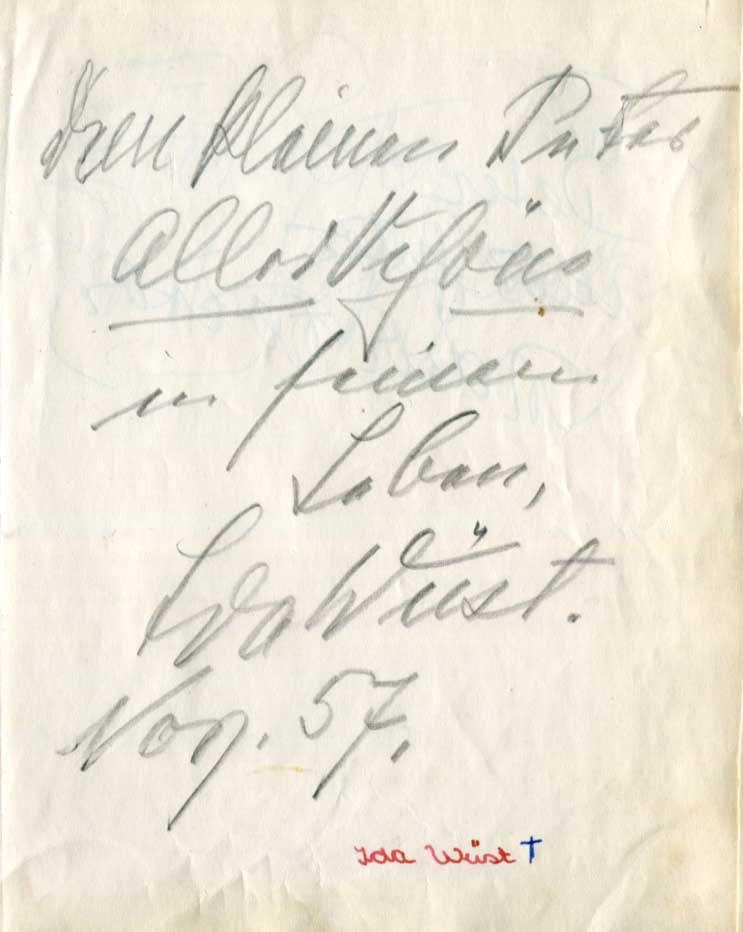 Dem kleinen Peter
Alles Schöne
in seinem
Leben,
Ida Wüst.
Nov. 57.
Ida Wüst †